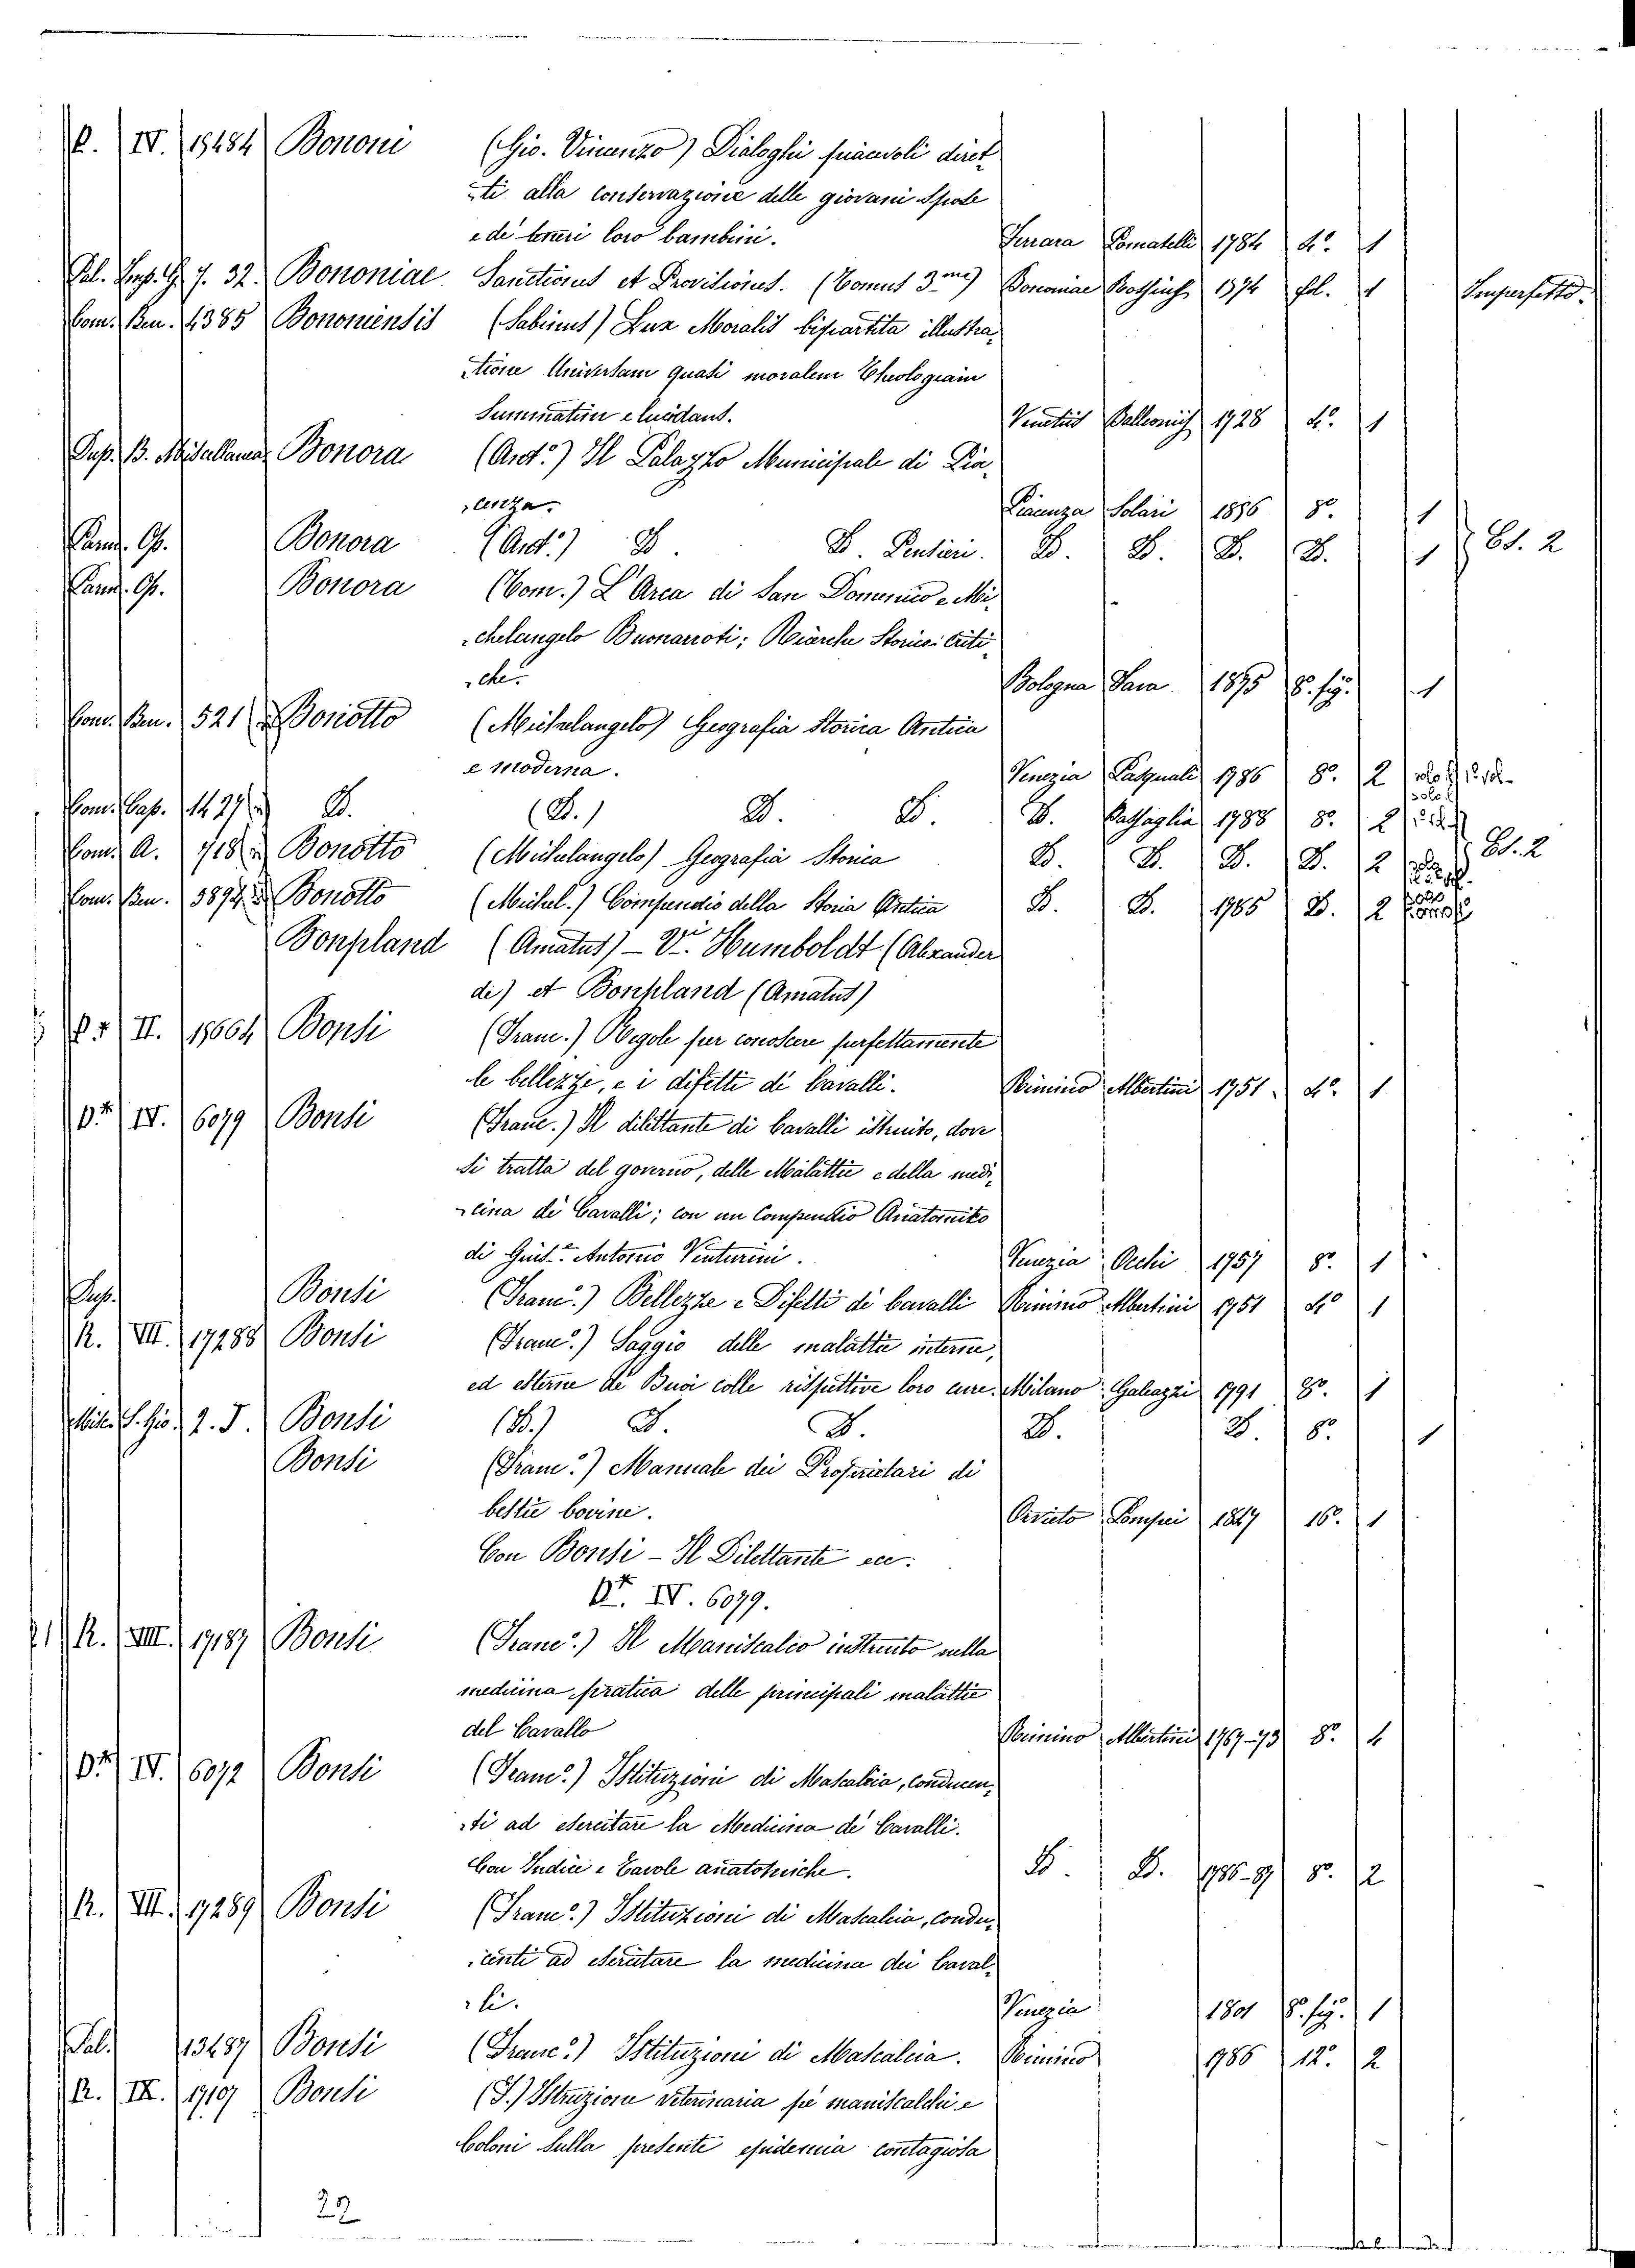 P. IV. 15484 Bononi (Gio. Vincenzo) Dialoghi piacevoli diret
ti alla conservazione delle giovani Spose
e de teneri loro bambini. Ferrara Pomatelli 1784 4.° 1
Pal. G. J. 32. Bononiae Sanctiones et Provisiones. (Tomus 3.us) Bononiae 1574 fol. 1 Imperfetto.
Com. Ben. 4385 Bononiensis (Sabinus) Lux Moralis bipartita illustra,
tione Universam quasi moralem Theologiam
Summatim elucidans. Venetiis Balleonius 1728 4.° 1
Sup. B. Miscellanea Bonora (Ant.°) Il Palazzo Municipale di Pia,
cenza. Piacenza Solari 1896 8.° 1
Parm. Gb. Bonora (Ant.°) D. D. Pensieri. D. D. D. D. 1 Es. 2
Parm. Gb. Bonora (Tom.) L'Arca di San Domenico e Mi,
chelangelo Buonarroti; Ricerche Storico-Criti,
che. Bologna 1875 8. fig.° 1
Com. Ben. 521 Bonotto (Michelangelo) Geografia Storica Antica
e moderna. Venezia Pasquali 1786 8.° 2
Com. Cap. 1427 D. (D.) D. D. D. Battaglia 1788 8.° 2
Com. A. 718 Bonotto (Michelangelo) Geografia Storica D. D. D. D. 2 Es. 2
Com. Ben. 5894 Bonotto (Michel.) Compendio della Storia Antica D. D. 1785 D. 2
Bonpland (Amatus) – V.i Humboldt (Alexander
di) et Bonpland (Amatus)
P.* II. 15664 Bonsi (Franc.) Regole per conoscere perfettamente
le bellezze, e i difetti de Cavalli. Rimino Albertini 1751 4.° 1
P.* IV. 6079 Bonsi (Franc.) Il dilettante di Cavalli istruito, dove
si tratta del governo, delle Malattie e della medi,
cina de Cavalli; con un Compendio Anatomico
di Gius.e Antonio Venturini. Venezia Occhi 1757 8.° 1
Sup. Bonsi (Franc.°) Bellezze e Difetti di Cavalli Rimino Albertini 1751 4.° 1
R. VII. 17288 Bonsi (Franc.°) Saggio delle malattie interne,
ed esterne de Buoi colle rispettive loro cure. Milano Galeazzi 1791 8.° 1
S. Gio. 2. J. Bonsi (D.) D. D. D. D. 8.° 1
Bonsi (Franc.°) Manuale dei Proprietari di
bestie bovine. Orvieto Pompei 1827 16.° 1
Con Bonsi – Il Dilettante ecc.
P.* IV. 6079.
R. VIII. 17187 Bonsi (Franc.°) Il Maniscalco instruito nella
medicina pratica delle principali malattie
del Cavallo Rimino Albertini 1767-73 8.° 4
P.* IV. 6072 Bonsi (Franc.°) Istituzioni di Mascalcia, conducen,
ti ad esercitare la Medicina de' Cavalli.
Con Indice e Tavole anatomiche. D. D. 1786-87 8.° 2
R. VII. 17289 Bonsi (Franc.°) Istituzioni di Mascalcia, condu,
centi ad esercitare la medicina dei Caval,
li. Venezia 1801 8. fig.° 1
Pal. 13487 Bonsi (Franc.°) Istituzioni di Mascalcia. Rimino 1786 12.° 2
R. IX. 17107 Bonsi (F.) Istruzione veterinaria pe' maniscalchi e
Coloni sulla presente epidemia contagiosa
22